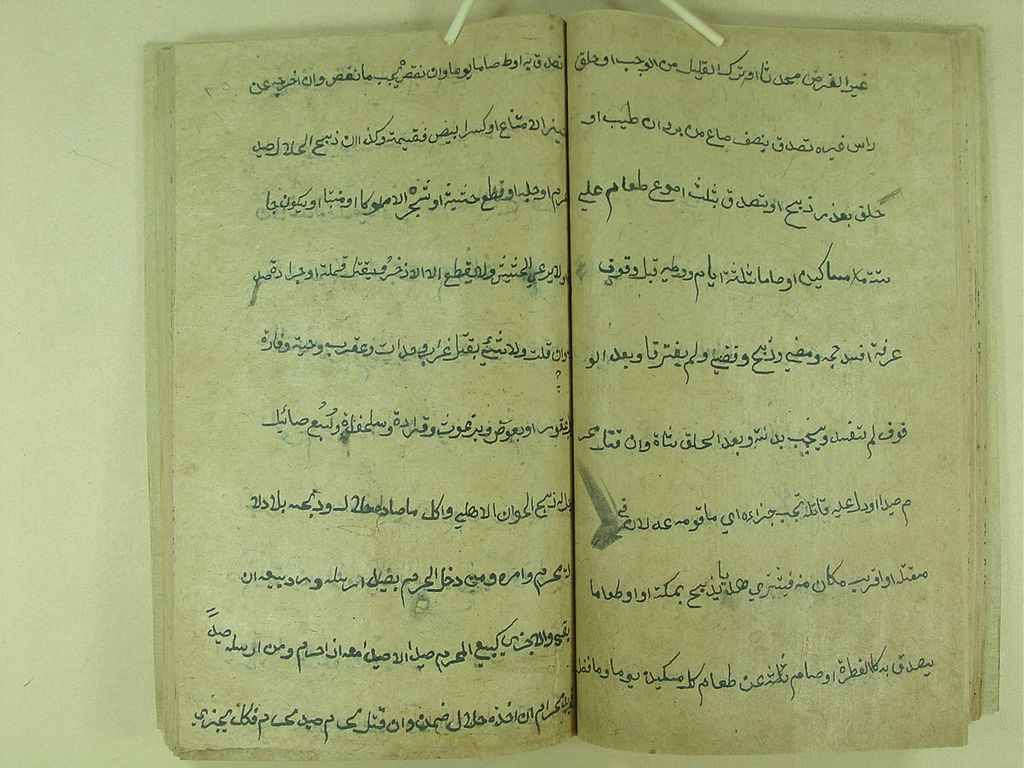 غير الفرض محدثا او ترك القليل من الوجب او حلق
راس غيره تصدق بنصف صاع من بر وان طيب او
حلق بعذر ذبح او تصدق بثلث اصوع طعام علي
ستة مساكين او صام ثلثة ايام ووطيه قبل وقوف
عرفة افسد حجه ومضي وذبح وقضي ولم يفترقا وبعد الو
قوف لم تفسد ويجب بدنة وبعد الحلق شاة وان قتل محر
م صيدا او دل عليه قاتله يجب جزاءه اي ما قومه عدلان في
مقتله او اقرب مكان منه فيشتري هديا يذبح بمكة او طعاما
يتصدق به كالفطرة او صام ثلثة عن طعام كل مسكين يوما وما فضل
تصدق به او صام يوما وان نقص يجب ما نقص وان اخرجه عن
حيز الامتناع او كسر ابيض فقيمته وكذا ان ذبح الحلال صيد
حرم او حلبه او قطع حشيشه او شجره الا مملوكا او منبتا او يكون جا
ولا يرعي الحشيش ولا يقطع الا الاذخر وبقتل قملة او جرادة صد
وان قلت ولا شئ بقتل غراب وحدات وعقرب وحية وفارة
او بعوض وبرغوث وقرادة وسلحفاة وسبع صائل
له ذبح الحيوان الاهلي واكل ما صاده حلال وذبحه بلا دلا
لة محرم وامره ومن دخل الحرم بصيد ارسله ورد بيعه ان
بقي والا جزي كبيع المحرم صيدا لا صيدا معه اذا احرم ومن ارسله صيد
احرام ان اخذه حلال ضمن وان قتل محرم صيد محرم فكل يجزي